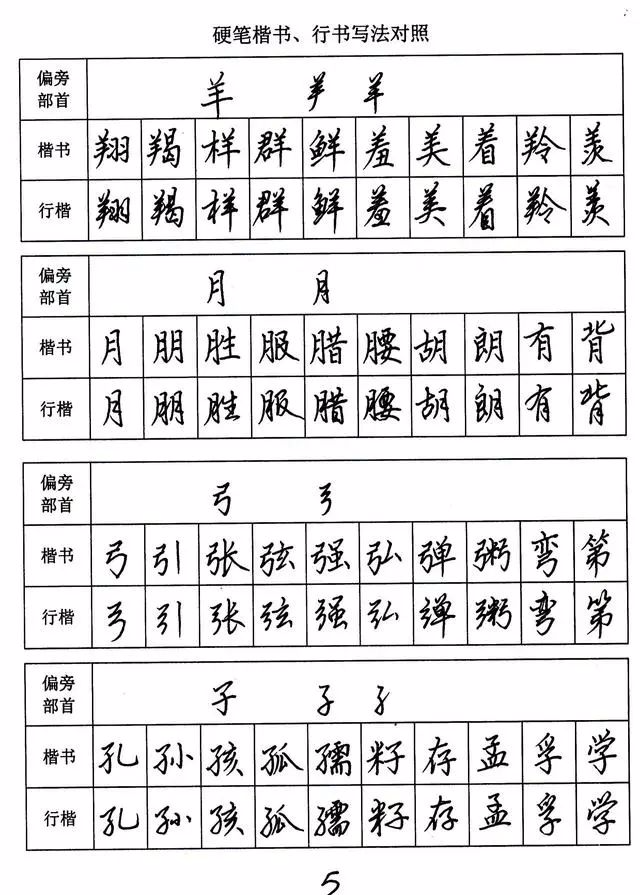 硬笔楷书、行书写法对照
偏旁部首 羊 羊 羊
楷书 翔 羯 样 群 鲜 羞 美 着 羚 羡
行楷 翔 羯 样 群 鲜 羞 美 着 羚 羡
偏旁部首 月 月
楷书 月 朋 胜 服 腊 腰 胡 朗 有 背
行楷 月 朋 胜 服 腊 腰 胡 朗 有 背
偏旁部首 弓 弓
楷书 弓 引 张 弦 强 弘 弹 粥 弯 第
行楷 弓 引 张 弦 强 弘 弹 粥 弯 第
偏旁部首 子 子 子
楷书 孔 孙 孩 孤 孺 籽 存 孟 孚 学
行楷 孔 孙 孩 孤 孺 籽 存 孟 孚 学
5